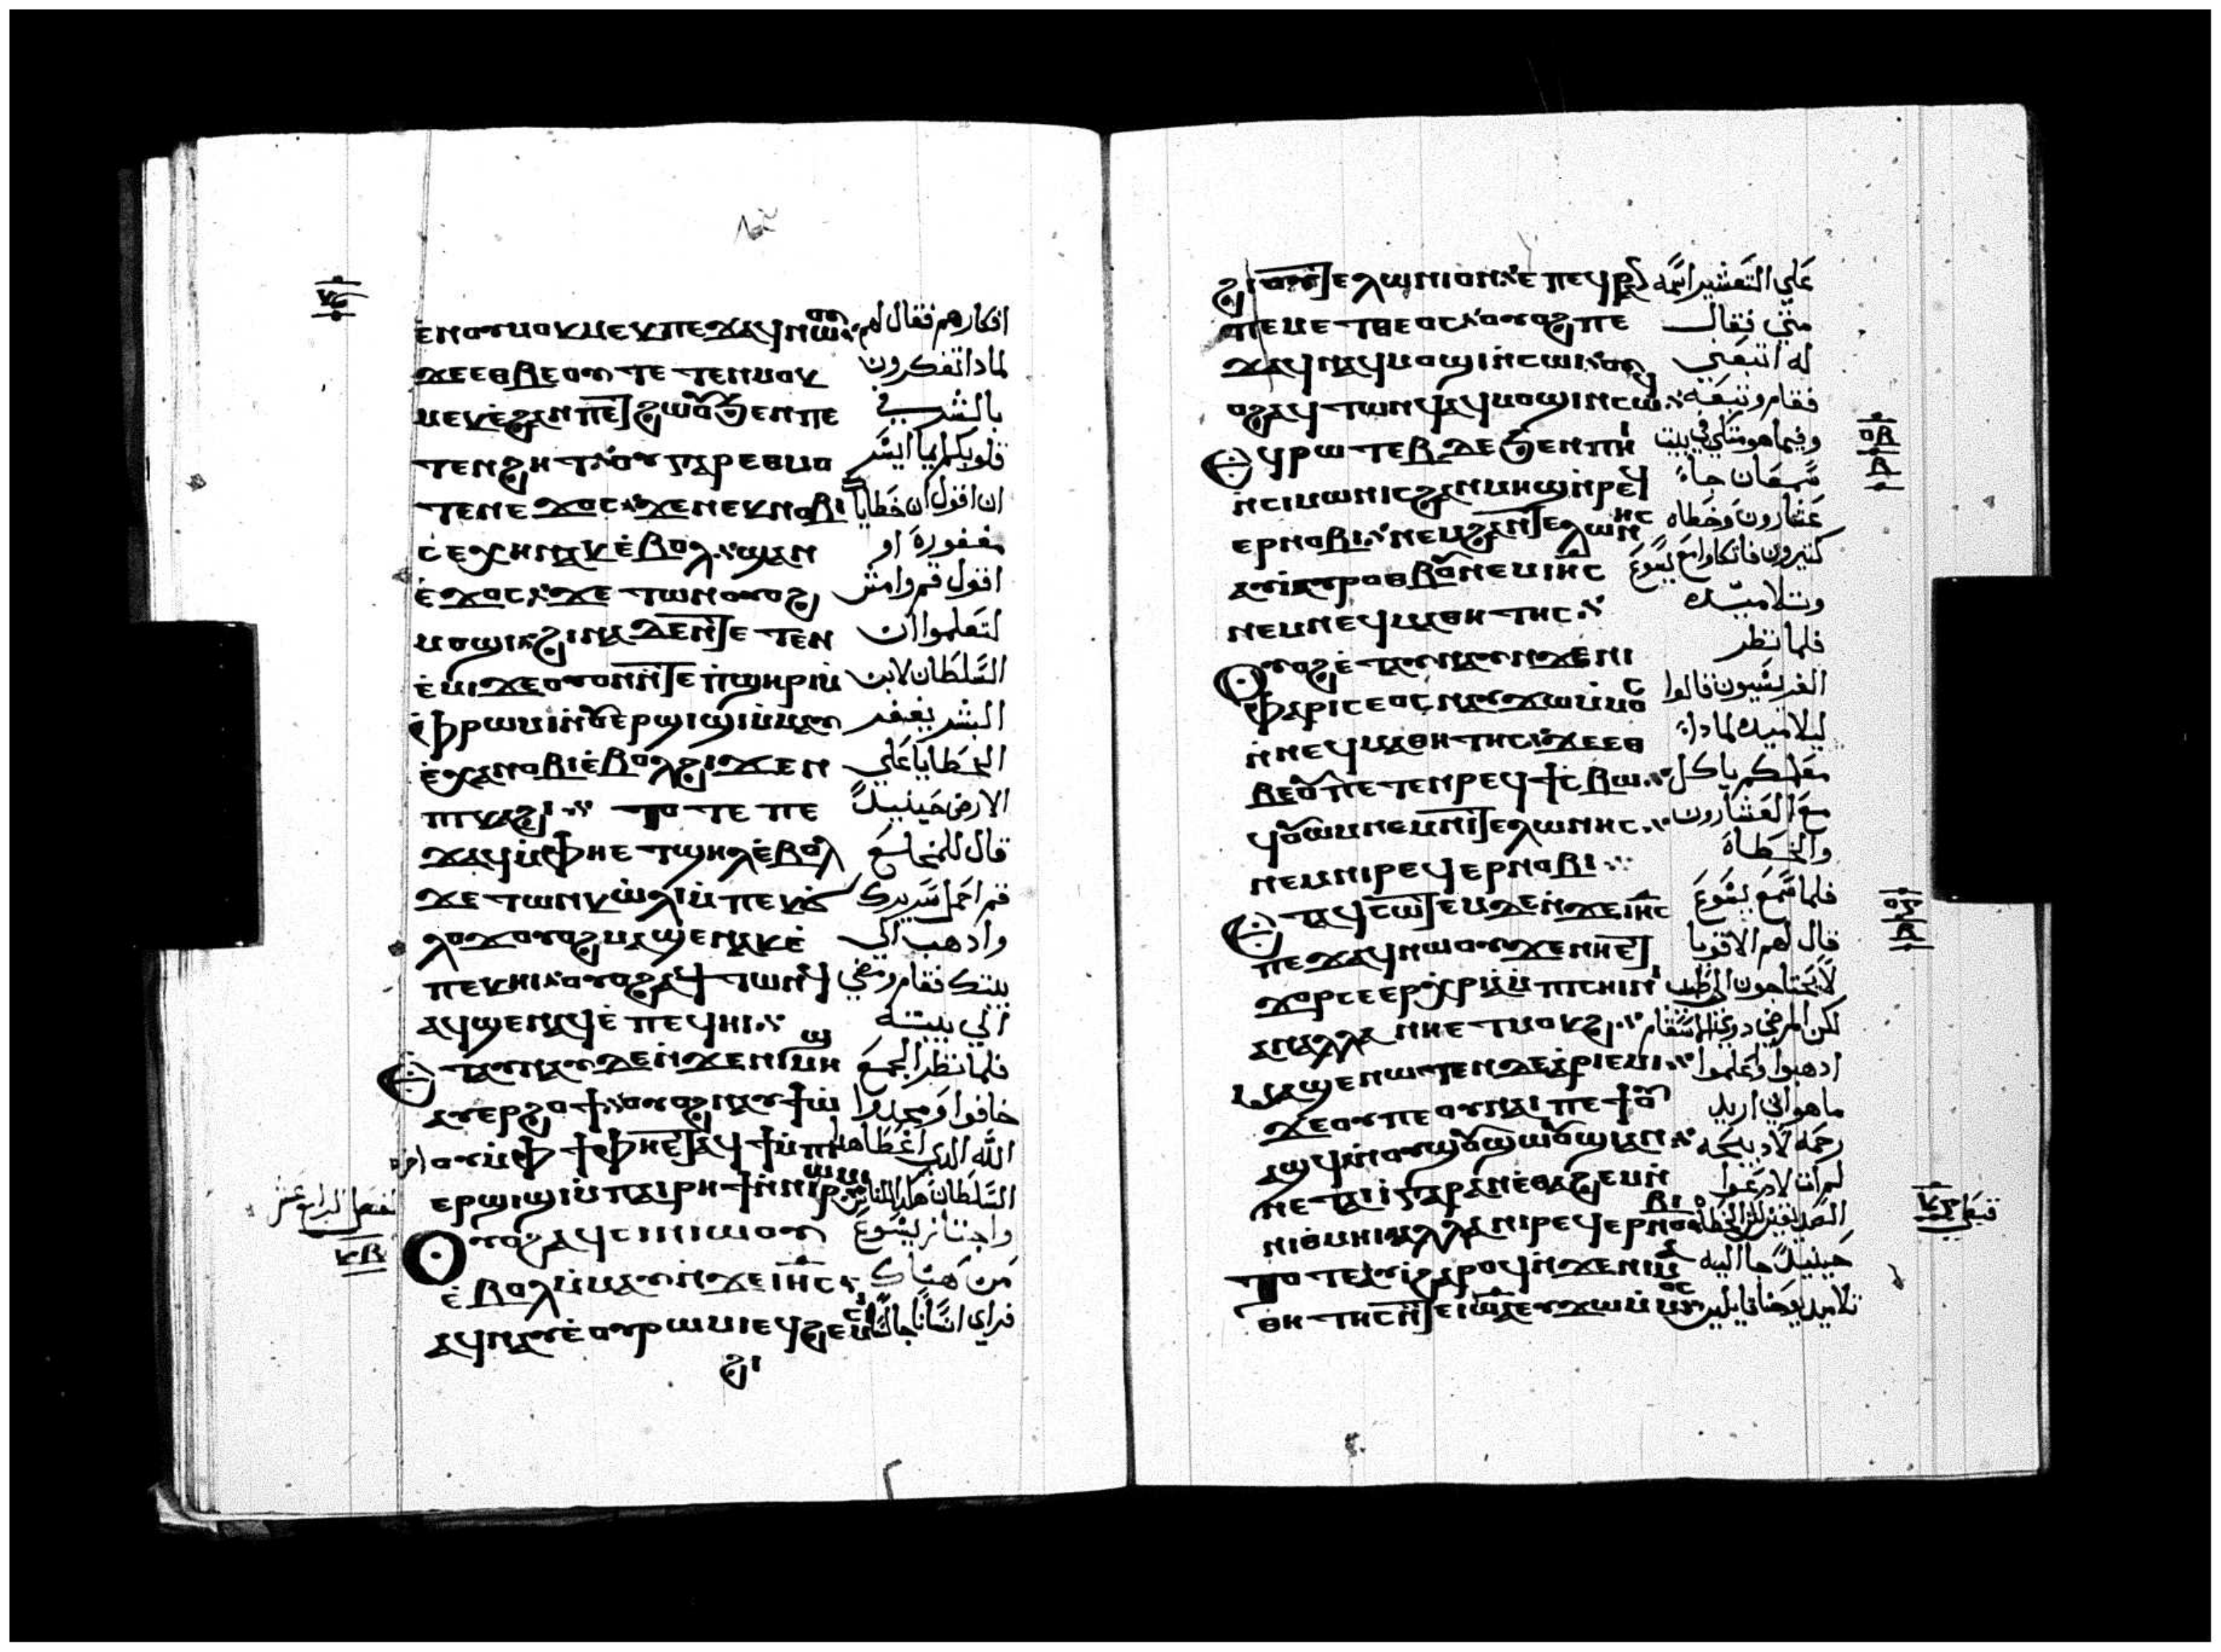 ⲉ̀ⲛⲟⲩⲙⲟⲕⲙⲉⲕ ⲡⲉϫⲁϥ ⲛⲱⲟⲩ افكارهم فقال لهم
ϫⲉ ⲉⲑⲃⲉⲟⲩ ⲧⲉⲧⲉⲛⲙⲟⲕ لماذا تفكرون
ⲙⲉⲕ ⲉ̀ϩⲁⲛⲡⲉⲧϩⲱⲟⲩ ϧⲉⲛ ⲡⲉ بالشر في
ⲧⲉⲛϩⲏⲧ ⲟⲩ ⲅⲁⲣ ⲉⲑⲙⲟ قلوبكم ايما ايسر
ⲧⲉⲛ ⲉ̀ϫⲟⲥ ϫⲉ ⲛⲉⲕⲛⲟⲃⲓ ان اقول ان خطاياك
ⲥⲉⲭⲏ ⲛⲁⲕ ⲉ̀ⲃⲟⲗ ϣⲁⲛ مغفورة او
ⲉ̀ϫⲟⲥ ϫⲉ ⲧⲱⲛⲕ ⲟⲩⲟϩ اقول قم وامش
ⲙⲟϣⲓ ϩⲓⲛⲁ ⲇⲉ ⲛ̀ⲧⲉⲧⲉⲛ لتعلموا ان
ⲉ̀ⲙⲓ ϫⲉ ⲟⲩⲟⲛ ⲛ̀ⲧⲉ ⲡ̀ϣⲏⲣⲓ ⲙ̀ السلطان لابن
ⲫ̀ⲣⲱⲙⲓ ⲙ̀ⲙⲁⲩ البشر يغفر
ⲉ̀ⲭⲁ ⲛⲟⲃⲓ ⲉ̀ⲃⲟⲗ ϩⲓϫⲉⲛ الخطايا علي
ⲡⲓⲕⲁϩⲓ ⲧⲟⲧⲉ ⲡⲉ الارض حينيذ
ϫⲁϥ ⲙ̀ⲫⲏ ⲉⲧϣⲏⲗ ⲉ̀ⲃⲟⲗ قال للمخلع
ϫⲉ ⲧⲱⲛⲕ ⲱ̀ⲗⲓ ⲙ̀ⲡⲉⲕϭ قم احمل سريرك
ⲗⲟϫ ⲟⲩⲟϩ ⲙⲁϣⲉ ⲛⲁⲕ ⲉ̀ واذهب الي
ⲡⲉⲕⲏⲓ ⲟⲩⲟϩ ⲁϥⲧⲱⲛϥ بيتك فقام ومضي
ⲁϥϣⲉ ⲛⲁϥ ⲉ̀ⲡⲉϥⲏⲓ الي بيته
ⲉⲧⲁⲩⲛⲁⲩ ⲇⲉ ⲛ̀ϫⲉ ⲛⲓⲙⲏϣ فلما نظر الجمع
ⲁⲩⲉⲣϩⲟϯ ⲟⲩⲟϩ ⲛⲁⲩϯⲱ̀ خافوا ومجدوا
ⲟⲩ ⲙ̀ⲫϯ ⲫⲏ ⲉⲧⲁϥϯ ⲙ̀ⲡⲓ الله الذي اعطا هذا
ⲉⲣϣⲓϣⲓ ⲙ̀ⲡⲁⲓⲣⲏϯ ⲛ̀ⲛⲓⲣⲱⲙⲓ السلطان هكذا للناس
ⲟⲩⲟϩ ⲁϥⲥⲓⲛⲓⲱⲟⲩ واجتاز يسوع
ⲉ̀ⲃⲟⲗ ⲙ̀ⲙⲁⲩ ⲛ̀ϫⲉ ⲓⲏⲥ من هناك
ⲁϥⲛⲁⲩ ⲉ̀ⲟⲩⲣⲱⲙⲓ ⲉϥϩⲉⲙⲥⲓ فراي انسانا جالسا
ϩⲓ
الفصل الرابع عشر
ⲕⲃ
ϩⲓ ⲡⲓⲧⲉⲗⲱⲛⲓⲟⲛ ⲉ̀ⲡⲉϥⲣⲁ علي التعشير اسمه
ⲛ ⲡⲉ ⲙⲁⲧⲑⲉⲟⲥ ⲟⲩⲟϩ ⲡⲉ متي فقال
ϫⲁϥ ⲛⲁϥ ⲙⲟϣⲓ ⲛ̀ⲥⲱⲓ ⲟⲩ له اتبعني
ⲟϩ ⲁϥⲧⲱⲛϥ ⲁϥⲙⲟϣⲓ ⲛ̀ⲥⲱϥ فقام وتبعه
ⲉϥⲣⲱⲧⲉⲃ ⲇⲉ ϧⲉⲛ ⲡⲏⲓ وفيما هو متكي في بيت
ⲛ̀ⲥⲓⲙⲱⲛ ⲓⲥ ϩⲁⲛⲙⲏϣ ⲛ̀ⲣⲉϥ سمعان جاء
ⲉⲣⲛⲟⲃⲓ ⲛⲉⲙ ϩⲁⲛⲧⲉⲗⲱⲛⲏⲥ عشارون وخطاه
ⲁⲩⲓ̀ ⲁⲩⲣⲟⲑⲃⲟⲩ ⲛⲉⲙ ⲓⲏⲥ كثيرون فاتكاوا مع يسوع
ⲛⲉⲙ ⲛⲉϥⲙⲁⲑⲏⲧⲏⲥ وتلاميذه
ⲟⲩⲟϩ ⲉ̀ⲧⲁⲩⲛⲁⲩ ⲛ̀ϫⲉ ⲛⲓ فلما نظر
ⲫⲁⲣⲓⲥⲉⲟⲥ ⲛⲁⲩϫⲱ ⲙ̀ⲙⲟⲥ الفريسيون قالوا
ⲛ̀ⲛⲉϥⲙⲁⲑⲏⲧⲏⲥ ϫⲉ ⲉⲑ لتلاميذه لماذا
ⲃⲉⲟⲩ ⲡⲉⲧⲉⲛⲣⲉϥϯⲥⲃⲱ معلمكم ياكل
ϥⲟⲩⲱⲙ ⲛⲉⲙ ⲛⲓⲧⲉⲗⲱⲛⲏⲥ مع العشارون
ⲛⲉⲙ ⲛⲓⲣⲉϥⲉⲣⲛⲟⲃⲓ والخطاة
ⲉⲧⲁϥⲥⲱⲧⲉⲙ ⲇⲉ ⲛ̀ϫⲉ ⲓⲏⲥ فلما سمع يسوع
ⲡⲉϫⲁϥ ⲛⲱⲟⲩ ϫⲉ ⲛⲏ ⲉⲧ قال لهم الاقويا
ϫⲟⲣ ⲥⲉⲉⲣⲭⲣⲓⲁ ⲙ̀ⲡⲓⲥⲏⲓⲛⲓ لا يحتاجون الي طبيب
ⲁⲛ ⲁⲗⲗⲁ ⲛⲏ ⲉⲧⲙⲟⲕϩ لكن المرضي ذوي الاسقام
ⲙⲁϣⲉ ⲛⲱⲧⲉⲛ ⲇⲉ ⲁ̀ⲣⲓⲉ̀ⲙⲓ اذهبوا واعلموا
ϫⲉ ⲟⲩ ⲡⲉ ⲟⲩⲛⲁⲓ ⲡⲉϯⲟⲩ ما هو اني اريد
ⲁϣϥ ⲛ̀ⲟⲩϣⲟⲩϣⲱⲟⲩϣⲓ ⲁⲛ رحمة لا ذبيحه
ⲛⲉⲧⲁⲓⲓ̀ ⲅⲁⲣ ⲁⲛ ⲉ̀ⲑⲁϩⲉⲙ ⲛ̀ لم ات لادعوا
ⲛⲓⲑⲙⲏⲓ ⲁⲗⲗⲁ ⲛⲓⲣⲉϥⲉⲣⲛⲟⲃⲓ الصديقين لكن الخطاه
ⲧⲟⲧⲉ ⲁⲩⲓ̀ ϩⲁⲣⲟϥ ⲛ̀ϫⲉ ⲛⲓⲙⲁ حينيذ جا اليه
ⲑⲏⲧⲏⲥ ⲛ̀ⲧⲉ ⲓⲱⲁ ⲉⲩϫⲱ ⲙ̀ⲙⲟⲥ تلاميذ يوحنا قايلين
ⲟⲃ
ⲃ
ⲟⲅ
ⲃ